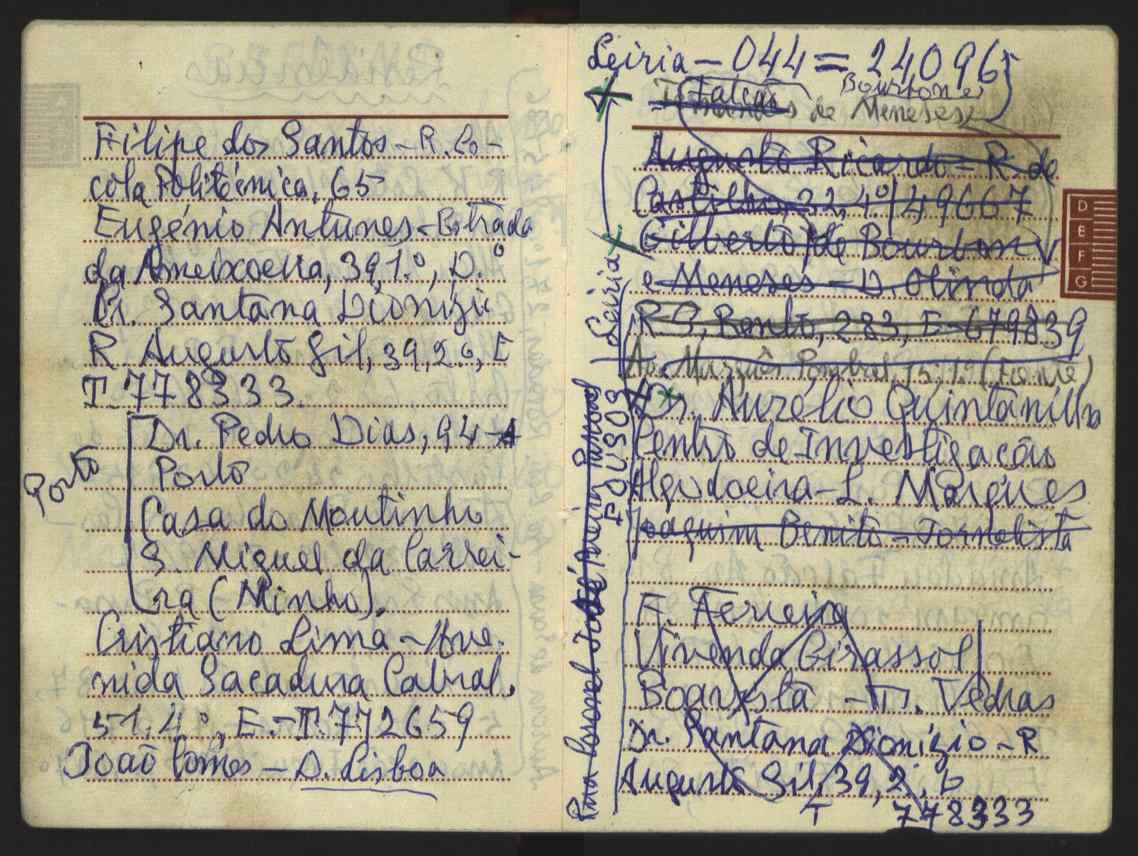 Filipe dos Santos - R. Es-
cola Politécnica, 65
Eugénio Antunes - Estrada
da Ameixoeira, 39, 1.º, D.º
Dr. Santana Dionízio
R. Augusto Gil, 39, 2.º, E
T. 778333.
Porto
Dr. Pedro Dias, 94-A
Porto
Casa do Moutinho
S. Miguel da Carrei-
ra (Minho).
Cristiano Lima - Ave-
nida Sacadura Cabral,
51, 4.º, E. - T. 772659
João Gomes - D. Lisboa
Leiria - 044 = 24096
Falcão Bourbon e
de Meneses
Augusto Ricardo - R. de
Castilho, 32, 4.º/49667
Gilberto de Bourbon
e Meneses - D. Olinda
R. S. Bento, 283, E - 679839
Av. Marquês Pombal, 15, 1.º
Leiria
POUSOS
Rua Coronel
Dr. Aurélio Quintanilha
Centro de Investigação
Algodoeira - L. Marques
Joaquim Benito - Jornalista
F. Ferreira
Vivenda Girassol
Boavista - T. Vedras
Dr. Santana Dionízio - R.
Augusto Gil, 39, 2.º,
T 778333
D
E
F
G